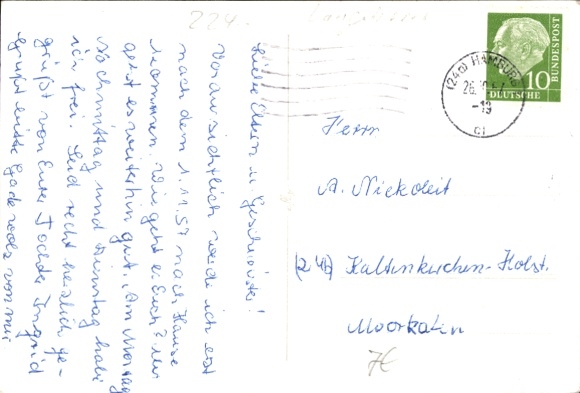 224.-
Liebe Eltern u. Geschwister!
Voraussichtlich werde ich erst
nach dem 1.11.57 nach Hause
kommen. Wie geht es Euch? Mir
geht es weiterhin gut. Am Montag
Nachmittag und Dienstag habe
ich frei. Seid recht herzlich ge-
grüßt von Eurer Tochter Ingrid
grüßt bitte von mir
DEUTSCHE
BUNDESPOST
10
(24a) HAMBURG
26.
-19
Herrn
A. Nickoleit
(24b) Kaltenkirchen-Holst.
Moorkaten
7€